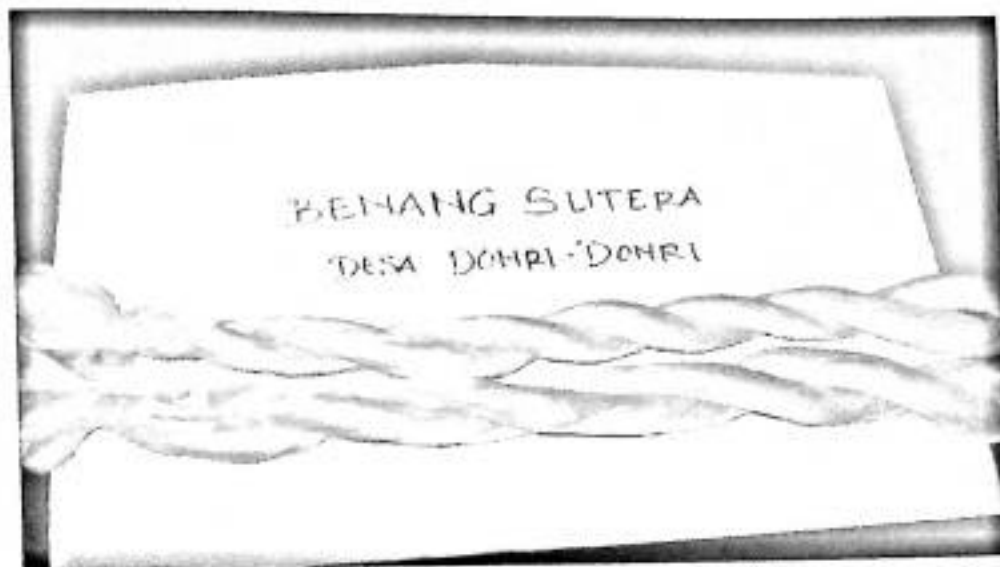 BENANG SUTERA
DESA DONRI-DONRI